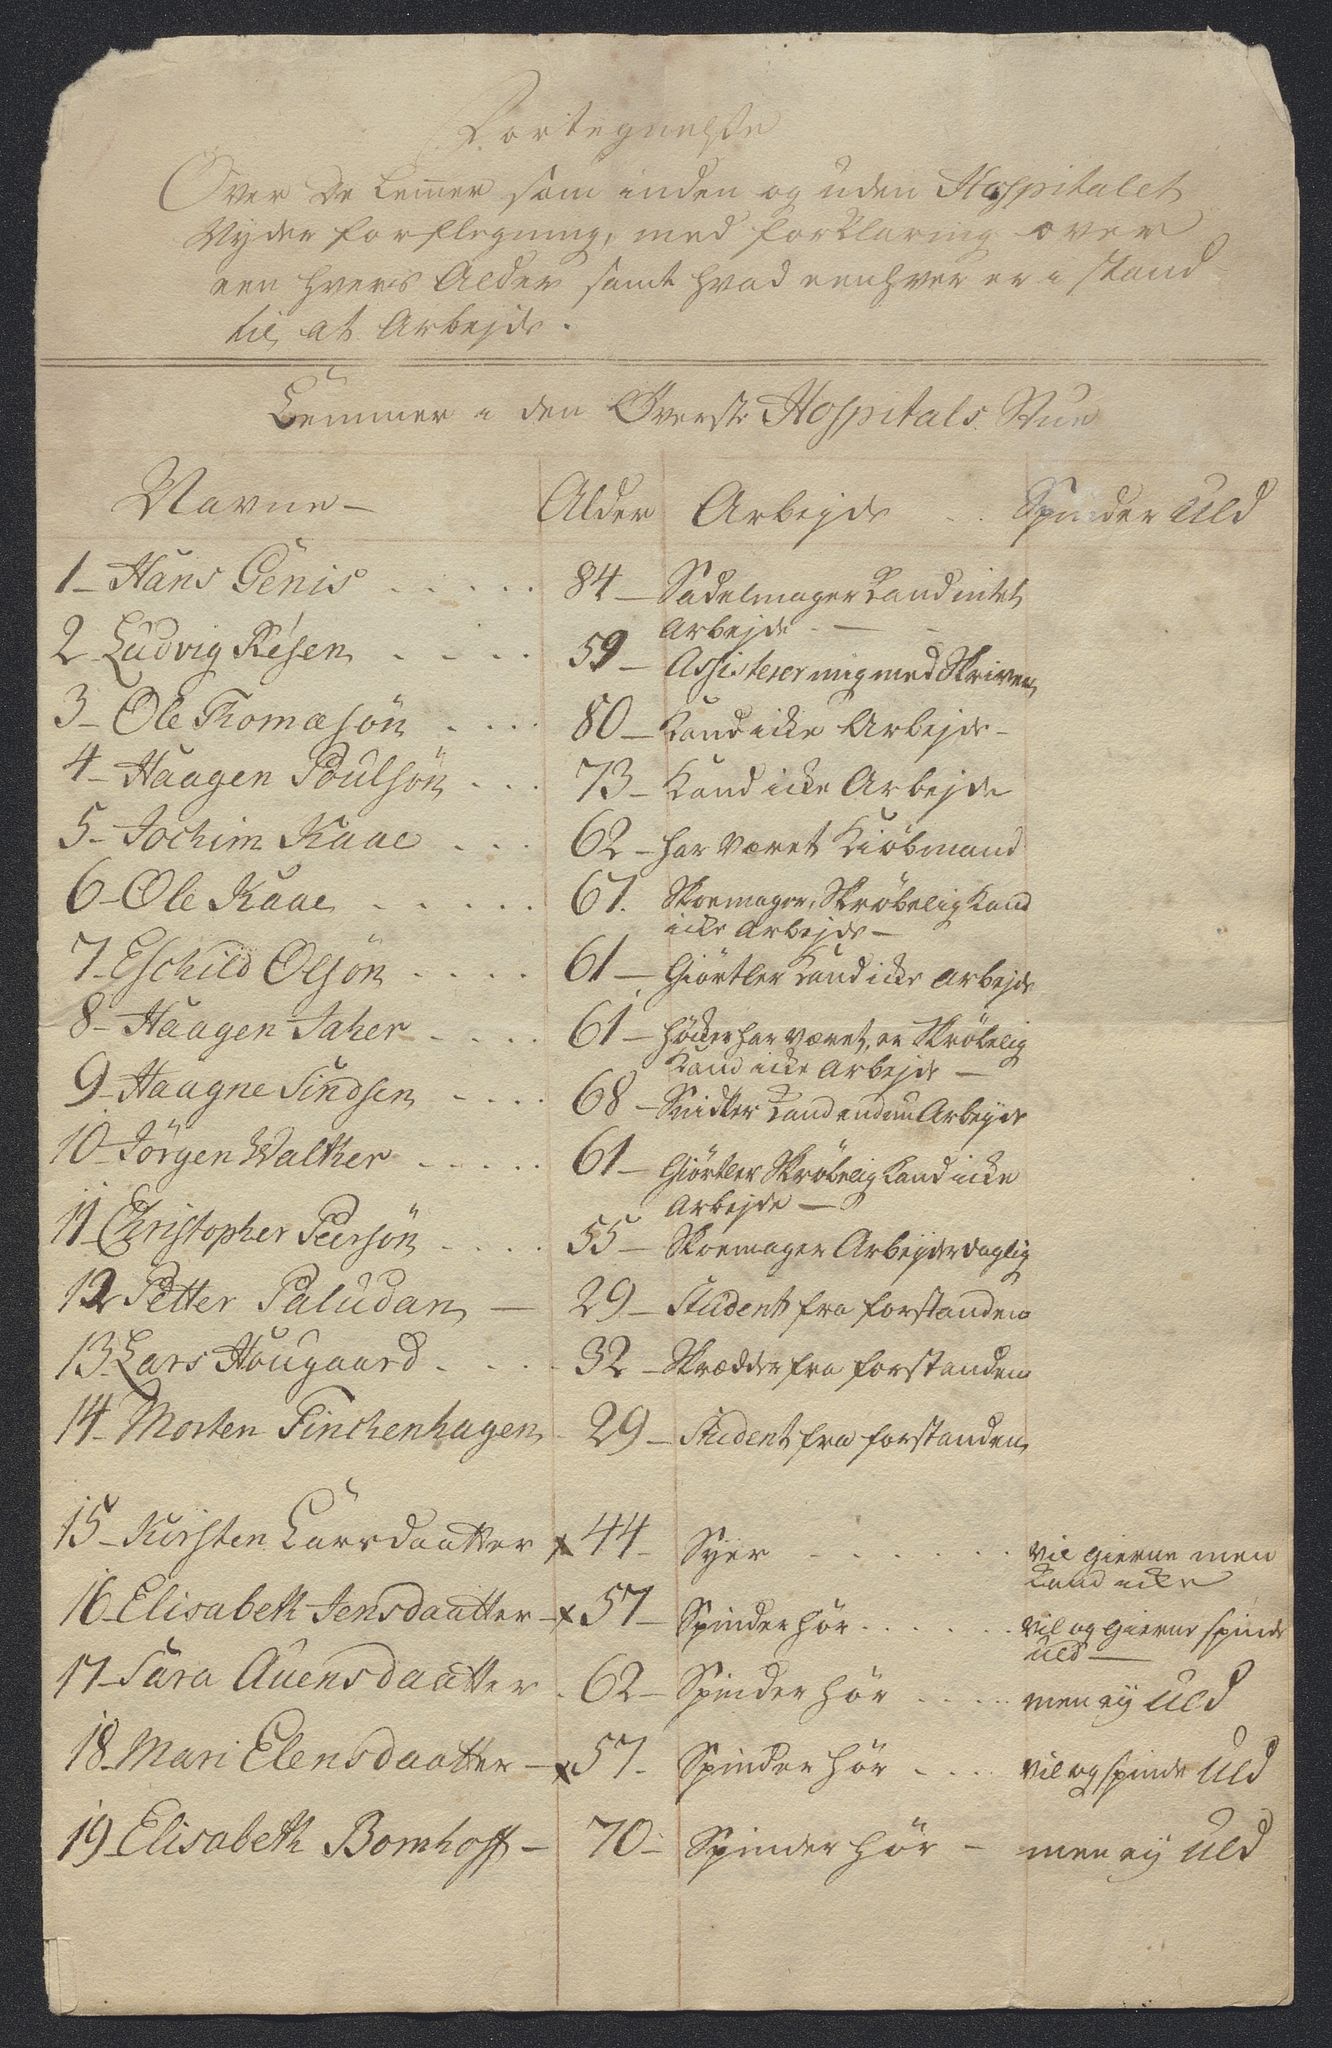 Fortegnelse
Over De Lemer som inden og uden Hospitalet
Nyder forflegning, med forklaring over
een hvers Alder samt hvad eenhver er i stand
til at Arbejde.
Lemmer i den Øverste Hospitals Stue
Navne – Alder Arbejde . . Spinder Uld
1 – Hans Genis . . . . . 84 – Sadelmager Kand intet
Arbejde –
2 Ludvig Resen . . . . 59 – Assisterer mig med Skriven
3 – Ole Thomæsön . . . . 80 – Kand icke Arbejde –
4 – Haagen Poulsön . . . 73 – Kand icke Arbejde
5 – Jochim Kaae . . . 62 – har været Kiöbmand
6 – Ole Kaae . . . . . 67. Skoemager, Skröbelig Kand
icke Arbejde –
7 – Eschild Olsön . . . . 61 – Giörtler Kand icke Arbejde
8 – Haagen Jaher . . . . 61 – höcker har været, er Skröbelig
Kand icke Arbejde –
9 – Haagne Sindsen . . . . 68 – Snidker Kand endnu Arbejde
10 – Jörgen Walker . . . . . 61 – Giörtler Skröbelig Kand icke
Arbejde –
11 – Christopher Peersön . . . . 55 – Skoemager Arbejder daglig
12 Petter Paludan – 29 – Student fra forstanden
13 Lars Hougaard . . . . 32 – Skrædder fra forstanden
14 – Morten Finckenhagen 29 – Student fra forstanden
15 – Kirsten Larsdaatter x 44 – Syer . . . . . . vil gierne men
Kand icke
16 – Elisabeth Jensdaatter – x 57 – Spinder hör . . . . . . vil og gierne spinde
uld –
17 – Sara Auensdaatter . 62 – Spinder hör . . . . men ey Uld
18 – Mari Elensdaatter – x 57 – Spinder hör . . . . vil og spinde Uld
19 – Elisabeth Bomhoff – 70 – Spinder hör – men ey Uld